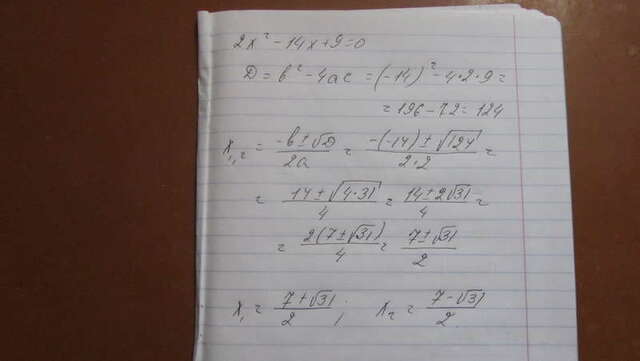 2x² - 14x + 9 = 0
D = b² - 4ac = (-14)² - 4·2·9 =
= 196 - 72 = 124
x₁,₂ = (-b ± √D)/(2a) = (-(-14) ± √124)/(2·2) =
= (14 ± √(4·31))/4 = (14 ± 2√31)/4 =
= (2(7 ± √31))/4 = (7 ± √31)/2
x₁ = (7 + √31)/2 ; x₂ = (7 - √31)/2